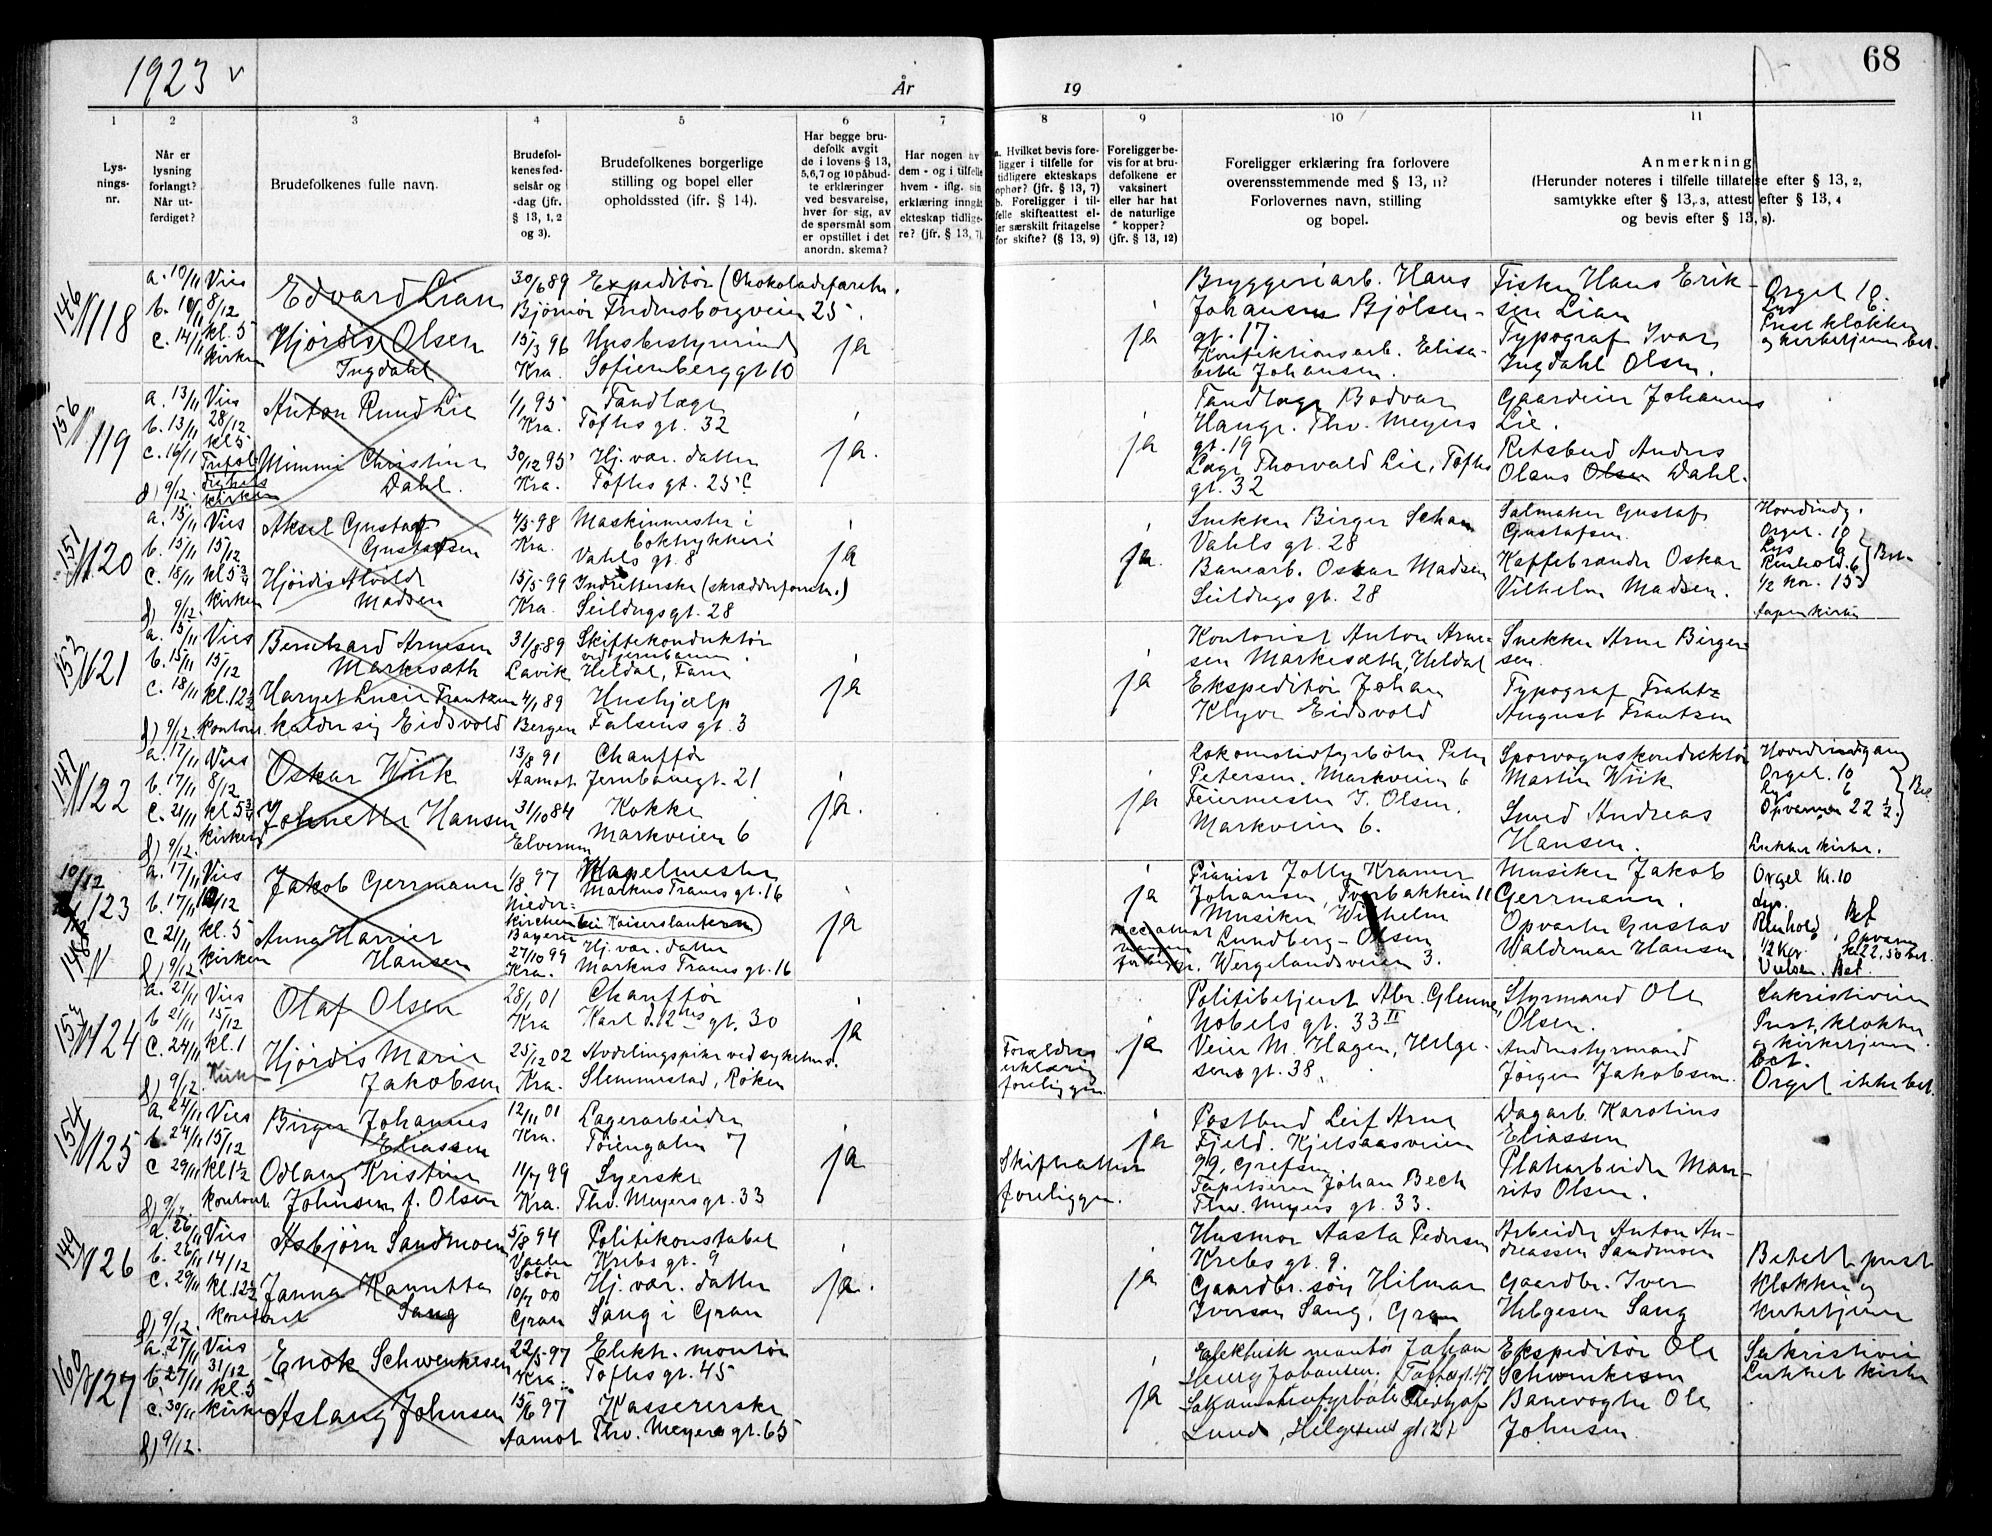 1923 v
År
19
68
1
2
3
4
5
6
7
8
9
10
11
Lys-
nings-
nr.
Når er
lysning
forlangt?
Når ut-
ferdiget?
Brudefolkenes fulle navn.
Brudefol-
kenes fød-
selsår og
-dag (jfr.
§ 13, 1, 2
og 3).
Brudefolkenes borgerlige
stilling og bopel eller
opholdssted (jfr. § 14).
Har begge bru-
defolk avgit
de i lovens § 13,
5, 6, 7 og 10 påbud-
te erklæringer
ved besvarelse,
hver for sig, av
de spørsmål som
er opstillet i det
anordn. skema?
Har nogen av
dem - og i tilfelle
hvem - iflg. sin
erklæring inngåt
ekteskap tidlige-
re? (jfr. § 13, 7).
a. Hvilket bevis fore-
ligger i tilfelle for
tidligere ekteskaps
ophør? (jfr. § 13, 7)
b. Foreligger i til-
felle skifteattest el-
ler særskilt fritagelse
for skifte? (§ 13, 9)
Foreligger be-
vis for at bru-
defolkene er
vaksinert
eller har hat
de naturlige
kopper?
(jfr. § 13, 12)
Foreligger erklæring fra forlovere
overensstemmende med § 13, 11?
Forlovernes navn, stilling
og bopel.
Anmerkning
(Herunder noteres i tilfelle tillatelse efter § 13, 2,
samtykke efter § 13, 3, attest efter § 13, 4
og bevis efter § 13, 8).
146
118
a. 10/11 Vies
b. 10/11 8/12
c. 14/11 kl. 5
kirken
Edvard Lian
Hjördis Olsen
Ingdahl
30/6 89 Expeditör (Chokoladeforretn.
Björnör Fredensborgveien 25.
15/3 96 Husbestyrerinde
Kra. Sofienberggt 10
ja
ja
Bryggeriarb. Hans
Johansen Bjölsen-
gt. 17.
Konfektionsarb. Elisa-
beth Johansen.
Fisker Hans Erik-
sen Lian
Typograf Ivar
Ingdahl Olsen.
Orgel 18.
Lys
Prest klokker
og kirketjener bet.
156
119
a. 13/11 Vies
b. 13/11 28/12
c. 16/11 kl 5
d) 9/12. kirken
Anton Ruud Lie
Mimmi Christine
Dahl.
1/1 95 Tandlæge
Kra. Toftes gt. 32
30/12 95 Hj. vær. datter
Kra. Toftes gt. 25 c
ja.
ja
Tandlæge Bodvar
Hauge. Thv. Meyers
gt. 19
Læge Thorvald Lie, Toftes
gt. 32
Gaardeier Johannes
Lie.
Retsbud Anders
Olaus Olsen Dahl.
151
120
a. 15/11 Vies
b. 15/11 15/12
c. 18/11 kl 5 3/4
d) 9/12. kirken
Aksel Gustav
Gustafsen
Hjördis Alvilde
Madsen
4/5 98 Maskinmester i
Kra. boktrykkeri
Vahls gt. 8
15/5 99 Indretterske (skrædderforretn.)
Kra. Seildugsgt. 28
ja
ja.
Snekker Birger Schau
Vahls gt. 28
Banearb. Oskar Madsen
Seildugs gt. 28
Salmaker Gustaf
Gustafsen.
Kaffebrænder Oskar
Vilhelm Madsen.
Hovedindg.
Orgel. 10
Lys 9
Renhold. 6
1/2 kor. 15
Aapen kirke
152
121
a. 15/11 Vies
b. 15/11 15/12
c. 18/11 kl. 12 1/2
d) 9/12. kontoret.
Bernhard Arnesen
Markesæth
Harget Lucie Frantzen
kalder sig Eidsvold
31/8 89 Skiftekonduktör
ved jernbanen.
Lavik Heldal, Fane
4/1 89 Hushjælp
Bergen Falsens gt. 3
ja
ja
Kontorist Anton Arne-
sen Markesæth, Heldal
Ekspeditör Johan
Klyve Eidsvold
Snekker Arne Birger-
sen.
Typograf Frantz
August Frantsen
147
122
a. 17/11 Vies
b. 17/11 8/12
c. 21/11 kl 5 3/4
d) 9/12. kirken
Oskar Wiik
Johnette Hansen
13/8 91 Chaufför
Aamot Jernbanegt. 21
31/10 84 Kokke
Elverum Markveien 6
ja.
ja
Lokomotivfyrböter Peter
Petersen. Markveien 6
Feiermester J. Olsen.
Markveien 6.
Sporvognskonduktör
Martin Wiik
Smed Andreas
Hansen.
Hovedindgang
Orgel. 10
Lys 6
Opvarmn 22 1/2.
Lukket kirke.
10/12
123
148
a. 17/11 Vies
b. 17/11 10/12
c. 21/11 kl. 5
d) 9/12. kirken
Jakob Gerrmann
Anna Harriet
Hansen
1/8 97 Kapelmester
Markus Tranes gt. 16
Nieder-
kirchen bei Kaiserslautern
Bayern
Hj. vær. datter
27/10 99
Kra. Markus Tranes gt. 16
ja
ja
Pianist Jolly Kramer
Johansen, Tverbakken 11
Musiker Wilhelm
Lundberg-Olsen
Wergelandsveien 3.
Musiker Jakob
Gerrmann.
Opvarter Gustav
Waldemar Hansen
Orgel kr. 10
Lys.
Renhold Bet
1/2 kor. Opvarm
kr. 22,50 bet.
154
124
a. 21/11 Vies
b 21/11 15/12
c. 24/11 kl. 1
d) 9/12. Kirken
Olaf Olsen
Hjördis Marie
Jakobsen
28/1 01 Chauffør
Kra Karl d. 12tes gt. 30
25/12 02 Avdelingspike ved sykehus.
Kra. Slemmestad, Röken
ja
Forældres
erklæring
foreligger.
ja
Politibetjent Abr. Glenne,
Nobels gt. 33 II
Veier M. Hagen, Helge-
sens gt. 38.
Styrmand Ole
Olsen.
Andenstyrmand
Jörgen Jakobsen.
Sakristiveien
Prest, klokker
og kirketjener
bet.
Orgel ikke bet.
154
125
a. 24/11 Vies
b. 24/11 15/12
c 29/11 kl 1 1/2
d) 9/12. kontoret
Birger Johannes
Eliassen
Odlaug Kristine
Johnsen f. Olsen
12/11 01 Lagerarbeider
Kra. Töiengaten 7
11/7 99 Syerske
Kra. Thv. Meyersgt. 33
ja
Skifteattest
foreligger.
ja
Postbud Leif Arne
Fjeld. Kjelsaasveien
99, Grefsen
Tapetserer Johan Bech
Thv. Meyers gt. 33.
Dagarb. Karolius
Eliassen
Platearbeider Mau-
rits Olsen.
149
126
a. 26/11 Vies
b. 26/11 14/12
c. 29/11 kl. 12 1/2
d) 9/12. kontoret
Asbjörn Sandmoen
Janna Kanutta
Sang
5/8 94 Politikonstabel
Vaaler Krebs gt. 9
Solör
10/7 00 Hj. vær. datter
Gran Sang i Gran
ja.
ja
Husmor Aasta Pedersen
Krebs gt. 9.
Gaardbr. sön Hilmar
Iverson Sang, Gran
Arbeider Anton An-
dreassen Sandmoen
Gaardbr. Iver
Helgesen Sang
Betalt prest
klokker og
kirketjener
160
127
a. 27/11 Vies
b. 27/11 31/12
kl. 5
c. 30/11 kirken
d) 9/12.
Enok Schwenkesen
Aslaug Johnsen
22/5 97 Elektr. montör
Kra. Toftes gt. 45
15/6 97 Kassererske
Aamot Thv. Meyers gt. 65
ja
Elektrisk montör Johan
Georg Johansen. Toftesgt. 47
Lokomotivfyrböter Fridtjof
Lund, Helgesens gt. 21
Ekspeditör Ole
Schwenkesen
Banevogter Ole
Johnsen.
Sakristiveien
Lukket kirke